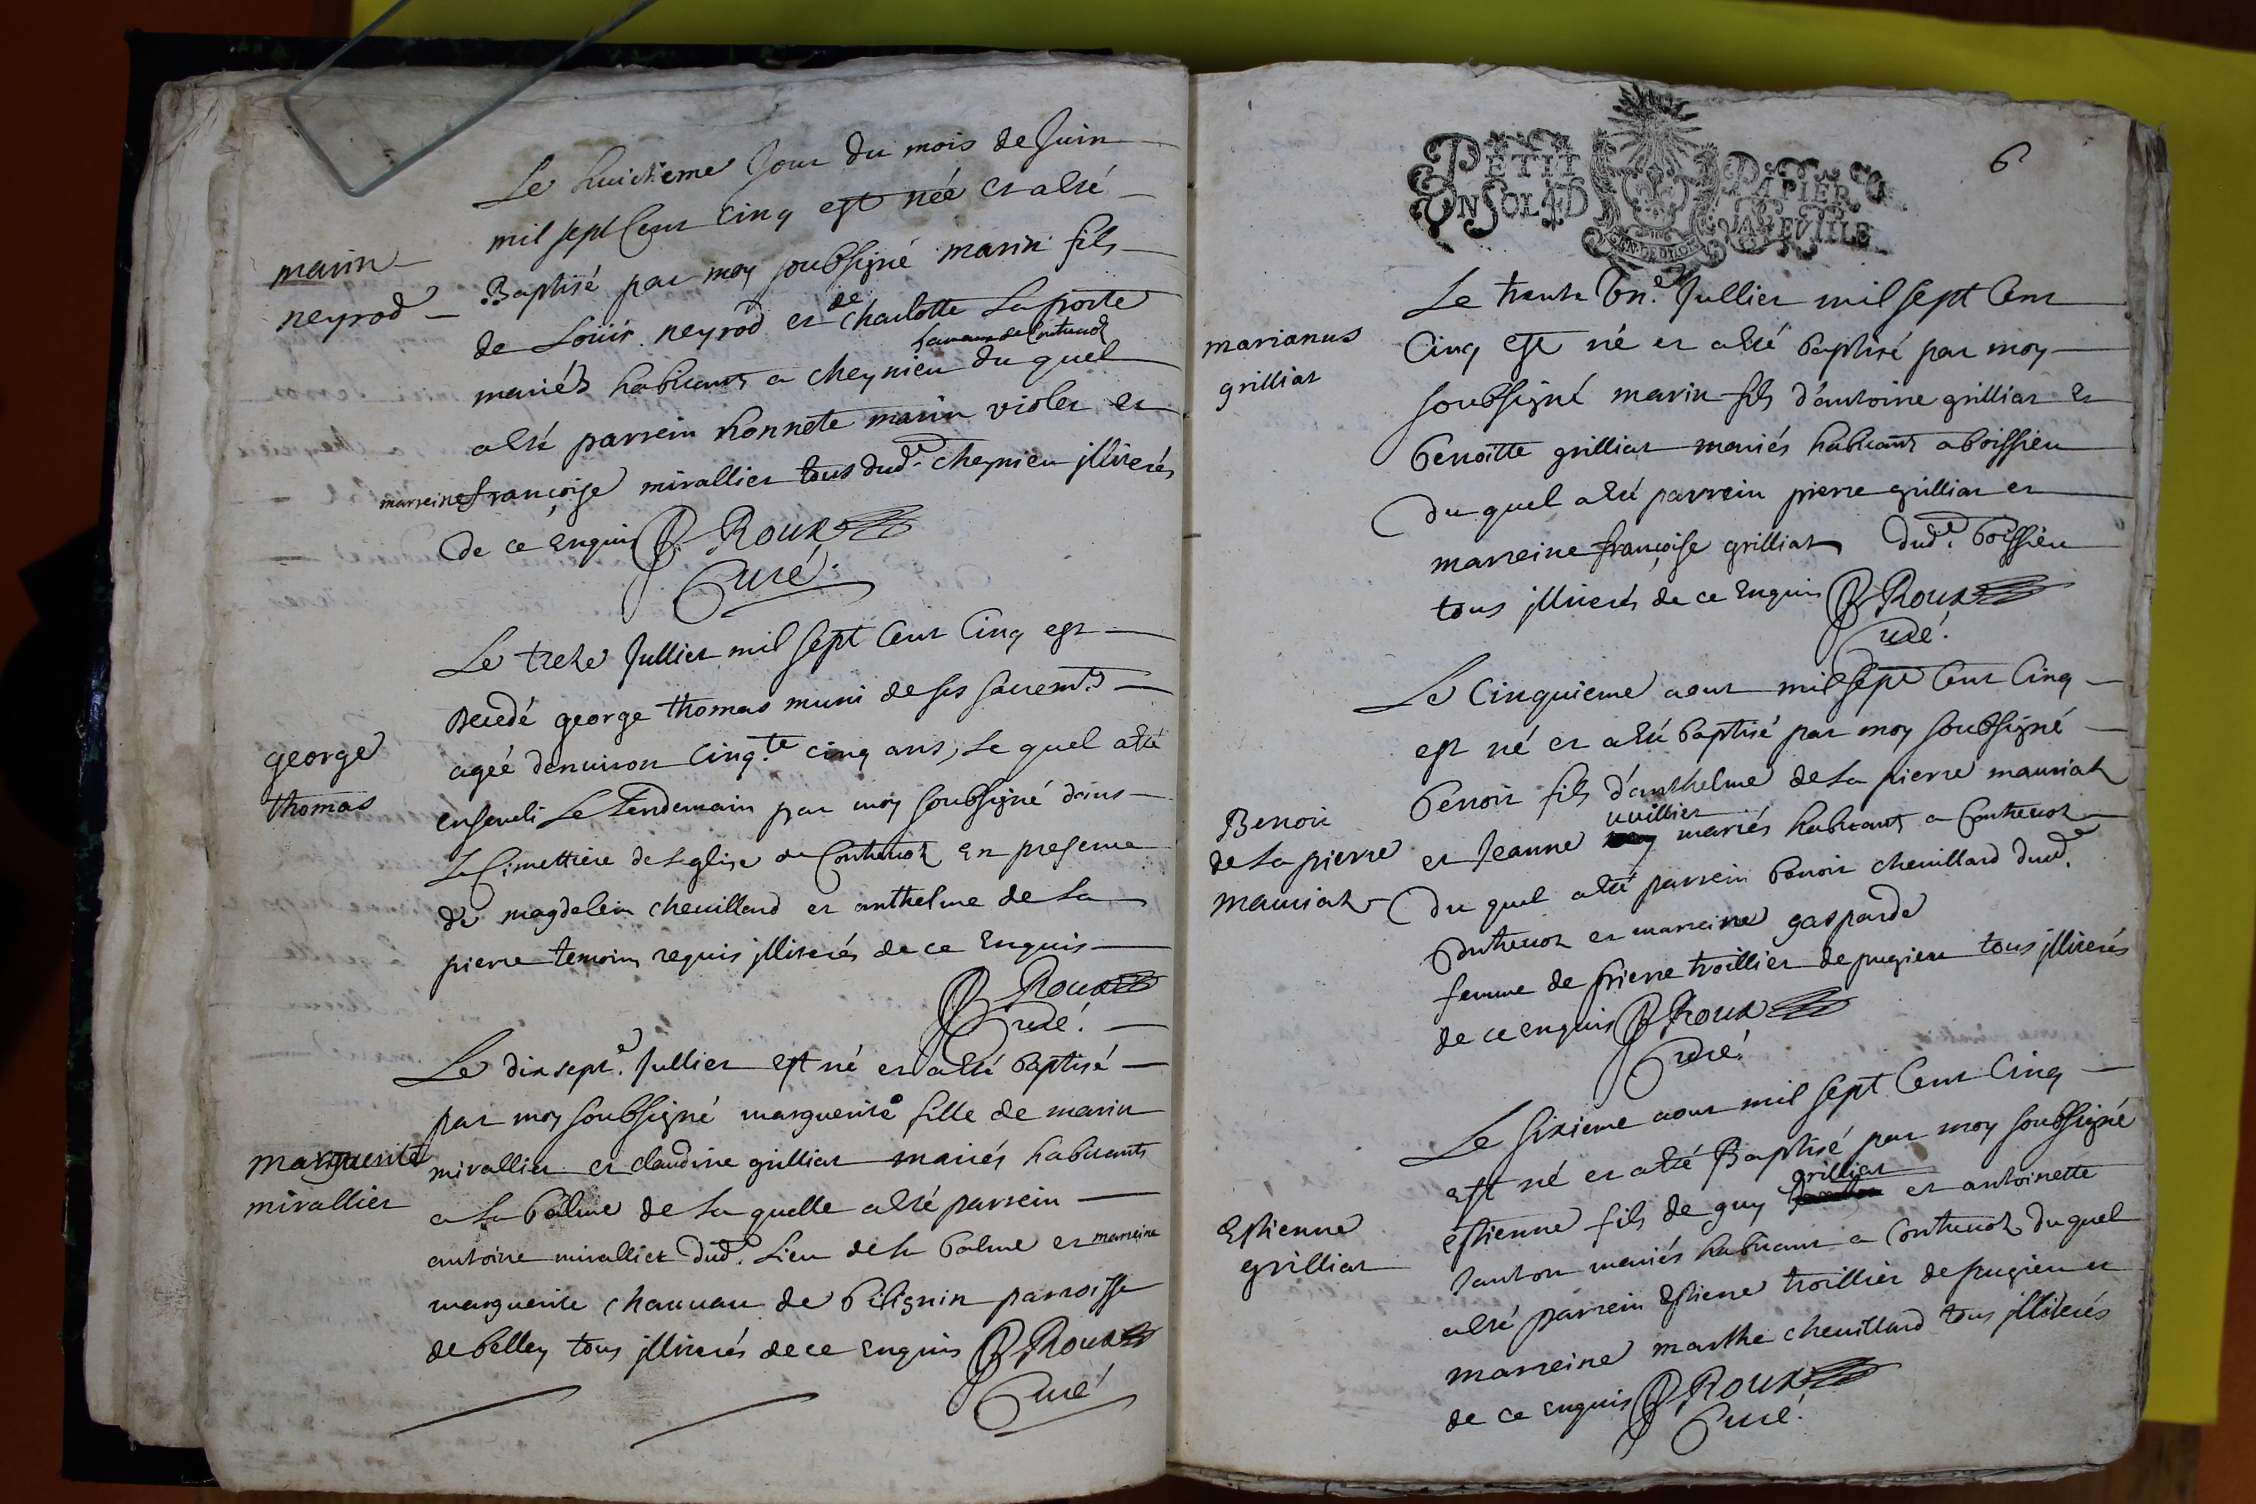 Le huictieme Jour du mois de Juin
mil sept Cent Cinq est née et a esté
marin
neyrod
Baptisé par moy soubsigné marin fils
de Loüis neyrod et de charlotte La porte
mariés habitants a cheynieu du quel
a esté parrein honnete marin violet et
marreine françoise mirallier tous dud. cheynieu illiterés
de ce enquis B Roux
Curé.
Le treze Juillier mil sept Cent Cinq est
george
thomas
Decedé george thomas muni de ses sacrem.ts
ageé denuiron Cinq.te cinq ans, Le quel a esté
enseveli Le Lendemain par moy soubsigné dans
Le Cimettiere de Leglise de Contrevoz En presence
de magdelein cheuillard et anthelme de La
pierre temoins requis illiterés de ce Enquis
B Roux
Curé.
Le dix sept.e Jullier est né et a esté baptisé
marguerite
mirallier
par moy soubsigné marguerite fille de marin
mirallier et claudine grilliat mariés habitants
a La balme de La quelle a esté parrein
antoine mirallier dud. Lieu de la balme et marreine
marguerite chauuau de billignin parroisse
de belley tous illiterés de ce enquis B Roux
Curé
PETIT PAPIER
UN SOL 4 D LA FEVILLE
6
Le trente Un.e Jullier mil sept Cent
marianus
grilliat
Cinq est né et a esté baptisé par moy
soubsigné marin fils d'antoine grilliat et
benoitte grilliat mariés habitants a boissieu
Du quel a esté parrein pierre grilliat et
marreine françoise grilliat dud. boissieu
tous illiterés de ce Enquis B Roux
Curé.
Le Cinquieme aout mil sept Cent Cinq
est né et a esté baptisé par moy soubsigné
Benoit
de La pierre
mauriat
benoit fils d'anthelme de La pierre mauriat
et Jeanne vuillier mariés habitants a Contrevoz
Du quel a esté parrein benoit cheuillard dud.
Contrevoz et marreine gasparde
femme de pierre troillier de pugieu tous illiterés
de ce enquis B Roux
Curé.
Le sixieme aout mil sept Cent Cinq
Est né et a esté Baptisé par moy soubsigné
Estienne
grilliat
estienne fils de guy grilliat et antoinette
Janton mariés habitant a Contrevoz du quel
a esté parrein Estienne troillier de pugieu et
marreine marthe cheuillard tous illiterés
de ce enquis B Roux
Curé.